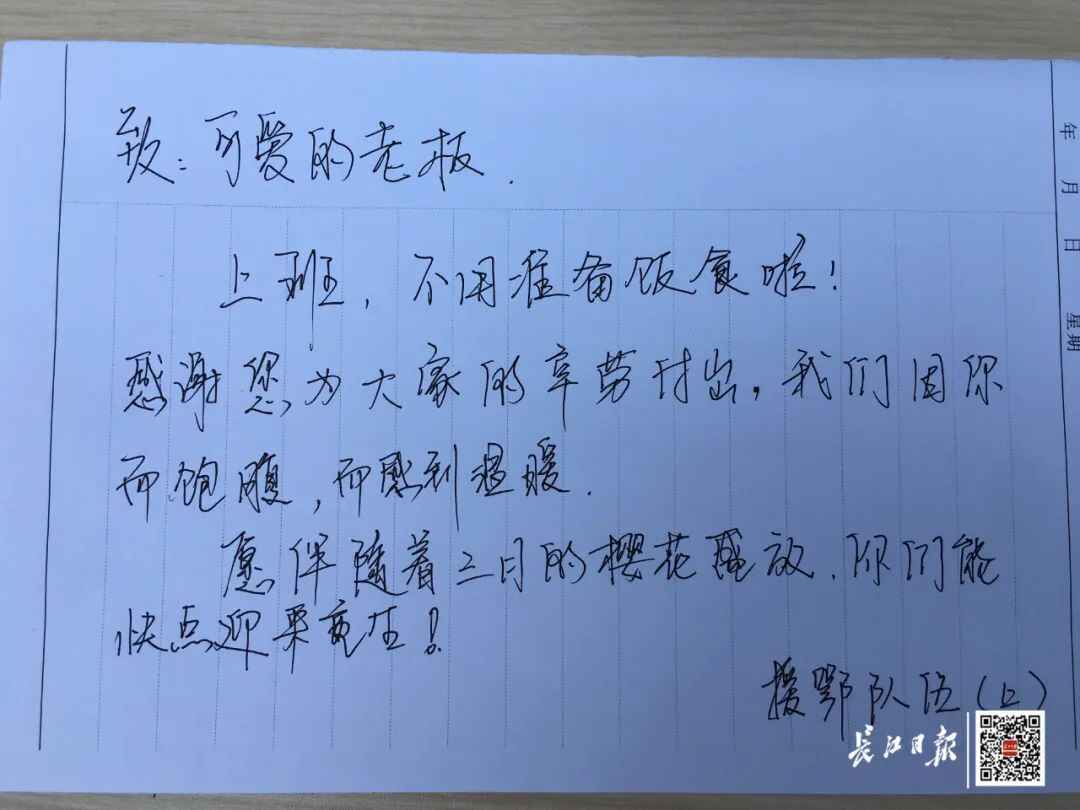 致：可爱的老板.
上班，不用准备饭食啦！
感谢您为大家的辛劳付出，我们因你
而饱腹，而感到温暖.
愿伴随着三月的樱花盛放，你们能
快点迎来重生！
援鄂队伍
年 月 日 星期
长江日报